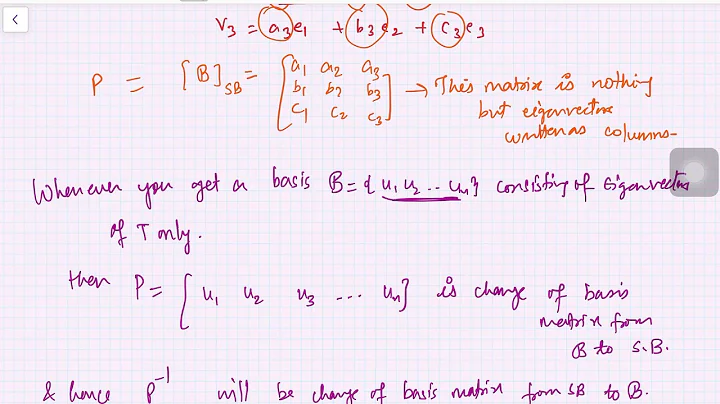 V₃ = a₃e₁ + b₃e₂ + c₃e₃
P = [B]_SB = [a₁ a₂ a₃ → This matrix is nothing
b₁ b₂ b₃ but eigenvectors
c₁ c₂ c₃] written as columns-
Whenever you get a basis B = {u₁ u₂ .. uₙ} consisting of Eigenvectors
of T only.
then P = [u₁ u₂ u₃ ... uₙ] is change of basis
matrix from
B to S.B.
& hence P⁻¹ will be change of basis matrix from SB to B.